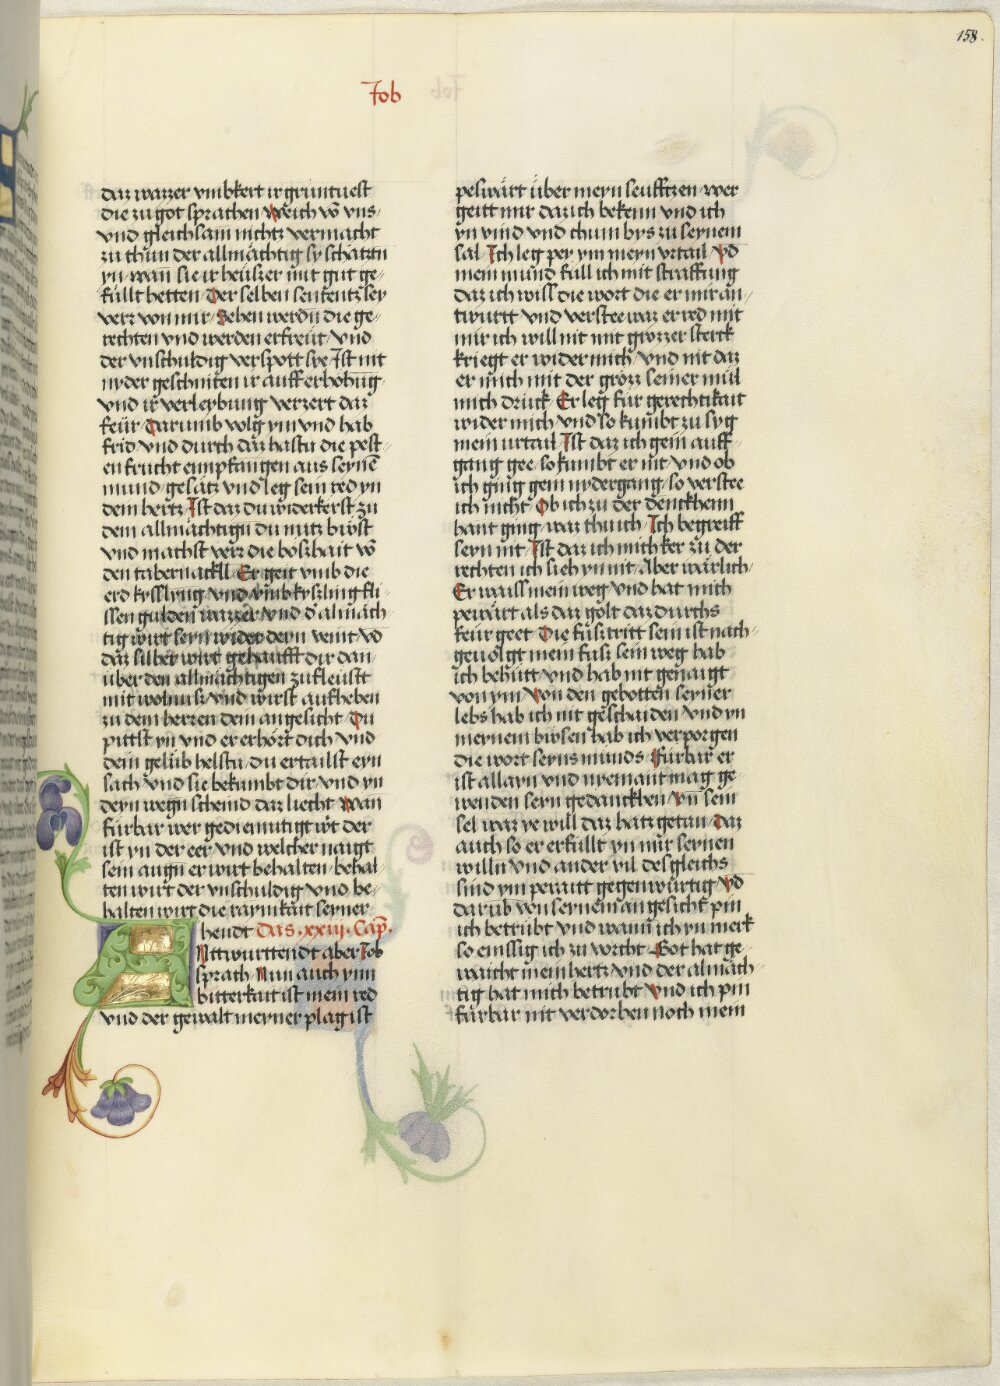 158.
Job
daz wazzer vmbkert ir gruntuest
die zu got sprachen Weich vō vns
vnd gleichsam nichtz vermacht
zu thun der allmächtig sy schätztn
yn wan̄ sie ir heuszer mit gut ge-
füllt hetten Der selben sententz sey
verz von mir Sehen werdn̄ die ge-
rechten vnd werden erfreüt vnd
der vnschuldig verspott sye Ist nit
nyder geschniten ir auff erhöhūg
vnd ir verleybung verzert daz
feür Darumb volg ym vnd hab
frid vnd durch daz hastu die pest-
en frucht empfangen aus seynē
mund gesätz vnd leg sein red yn
dem hertz Ist daz du widerkerst zu
dem allmächtign du wirst
vnd machst verz die boszhait vō
den tabernackll Er geit vmb die
erd kysslyng vnd vmb kyszling fli-
ssen gulden wazzer vnd d almäch-
tig wirt seyn wider deyn veint vd
daz silber wirt gehaufft dir dan
über den allmächtigen zufleüstt
mit wolnust vnd wirst aufheben
zu dem herzen dein angesicht Du
pittst yn vnd er erhört dich vnd
dein gelüb helstu du ertailst eyn
sach vnd sie bekumbt dir vnd yn
deyn wegn̄ scheind daz liecht wan
fürbar wer gediemutigt wt der
ist yn der eer vnd welcher naigt
sein augn̄ er wirt behalten behal-
ten wirt der vnschuldig vnd be-
halten wirt die raynikait seyner
hendt Das .xxiij. Cap̄.
Attwurttendt aber Job
sprach Nun auch ynn
bitterkait ist mein red
vnd der gewalt meyner plag ist
peswärt über meyn seufftzen wer
geitt mir daz ich bekenn vnd ich
yn vind vnd chum bys zu seynem
sal Ich leg pey ym meyn vrtail Vd
mein mund full ich mit straffung
daz ich wiss die wort die er mir an-
twurtt vnd verstee waz er red mit
mir ich will nit mit grozzer sterck
kriegt er wider mich vnd nit daz
er mich mit der grözz seiner mül
mich druck Er leg für gerechtikait
wider mich vnd so kumbt zu syg
mein urtail Ist daz ich gein auff-
gang gee so kumbt er nit vnd ob
ich ging gein nydergang so verstee
ich nicht Ob ich zu der denckhenn
hant ging waz thu ich Ich begreiff
seyn nit Ist daz ich mich ker zu der
rechten ich sieh yn nit Aber wärlich
Er waiss mein weg vnd hat mich
pewärt als daz golt daz durchs
feür geet Die fusztritt sein ist nach-
geuolgt mein fusz sein weg hab
ich behütt vnd hab nit genaigt
von ym Von den gebotten seyner
lebs hab ich nit geschaiden vnd yn
meynem busen hab ich verporgen
die wort seyns munds Fürbar er
ist allayn vnd nyemant mag ge-
wenden seyn gedanckhen vn̄ sein
sel waz ye will daz hatz getan Daz
auch so er erfüllt yn mir seynen
willn vnd ander vil desgleichs
sind ym peraitt gegenwürtig Vd
darūb von seynem angesicht pin
ich betrübt vnd wann ich yn merk
so emssig ich zu vorcht Got hat ge-
waicht mein hertz vnd der almäch-
tig hat mich betrubt Vnd ich pin
fürbar nit verdorben noch mein